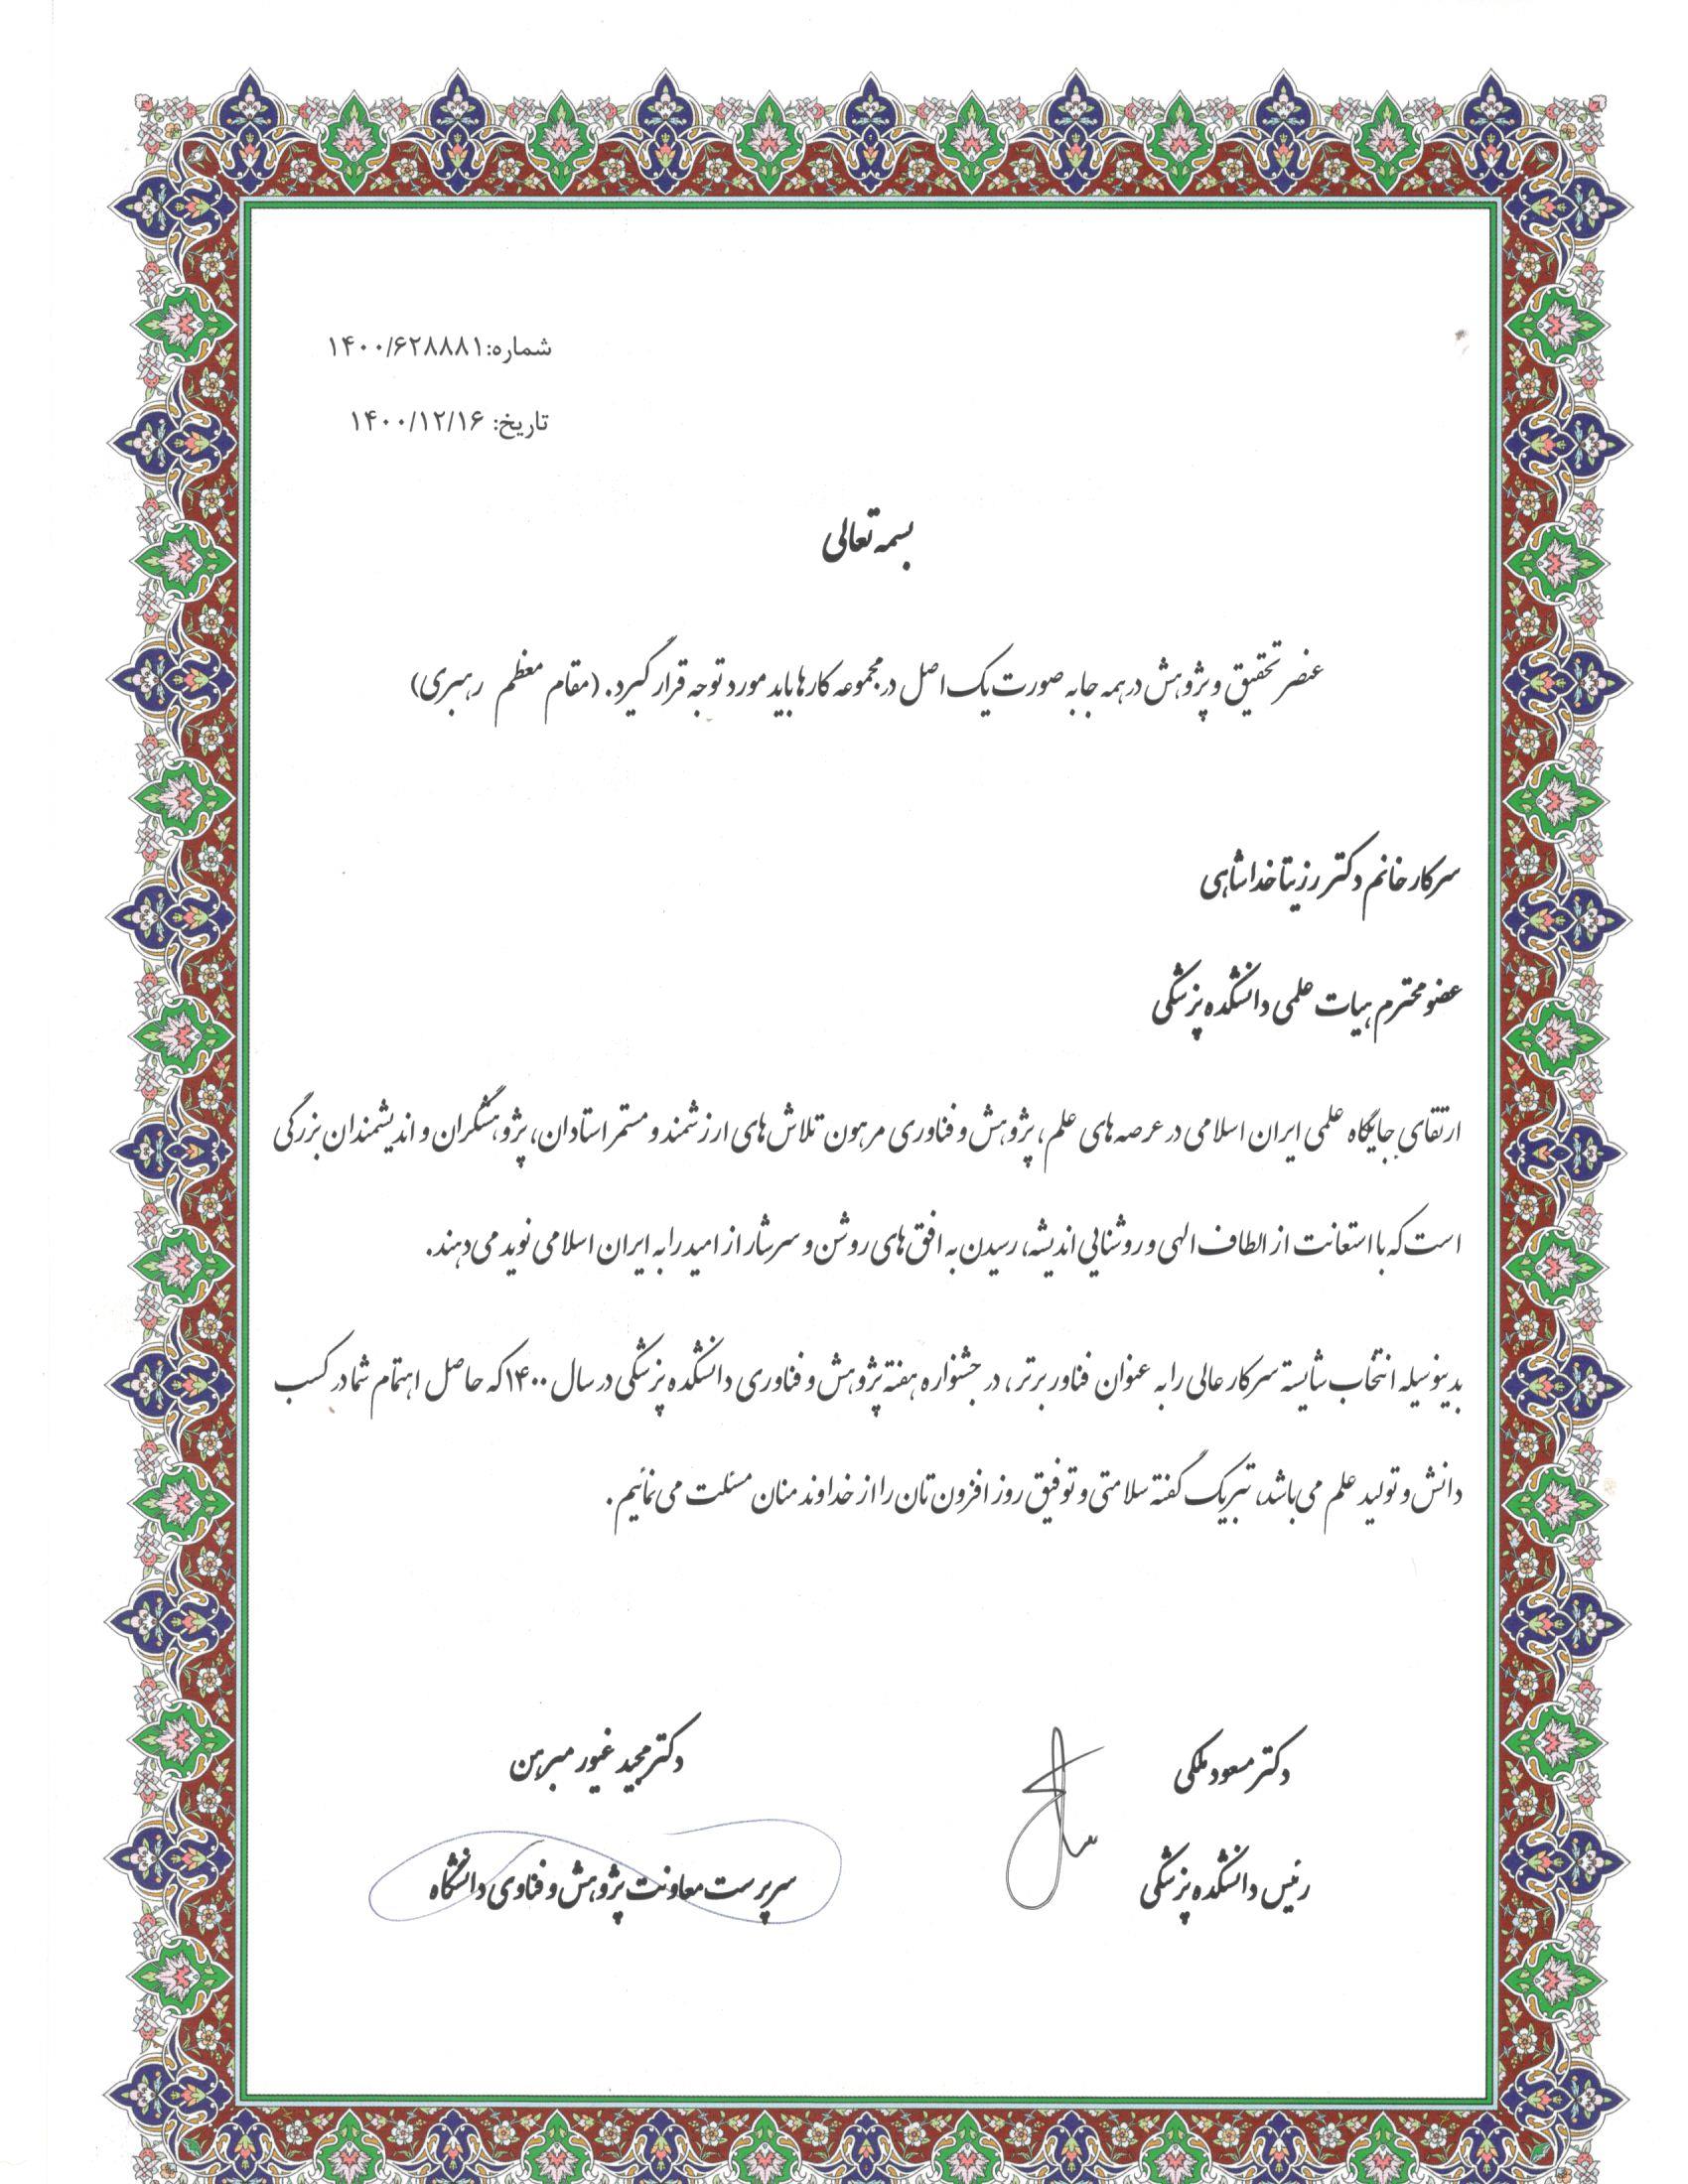 شماره: ۱۴۰۰/۶۲۸۸۸۱
تاریخ: ۱۴۰۰/۱۲/۱۶
بسمه تعالی
عنصر تحقیق و پژوهش در همه جا به صورت یک اصل در مجموعه کارها باید مورد توجه قرار گیرد. (مقام معظم رهبری)
سرکار خانم دکتر رزیتا خداشاهی
عضو محترم هیات علمی دانشکده پزشکی
ارتقای جایگاه علمی ایران اسلامی در عرصه های علم، پژوهش و فناوری مرهون تلاش های ارزشمند و مستمر استادان، پژوهشگران و اندیشمندان بزرگی
است که با استعانت از الطاف الهی و روشنایی اندیشه، رسیدن به افق های روشن و سرشار از امید را به ایران اسلامی نوید می دهند.
بدینوسیله انتخاب شایسته سرکار عالی را به عنوان فناور برتر، در جشنواره هفته پژوهش و فناوری دانشکده پزشکی در سال ۱۴۰۰ که حاصل اهتمام شما در کسب
دانش و تولید علم می باشد، تبریک گفته سلامتی و توفیق روز افزون تان را از خداوند منان مسئلت می نمائیم.
دکتر مسعود ملکی
رئیس دانشکده پزشکی
دکتر مجید غیور مبرهن
سرپرست معاونت پژوهش و فناوی دانشگاه